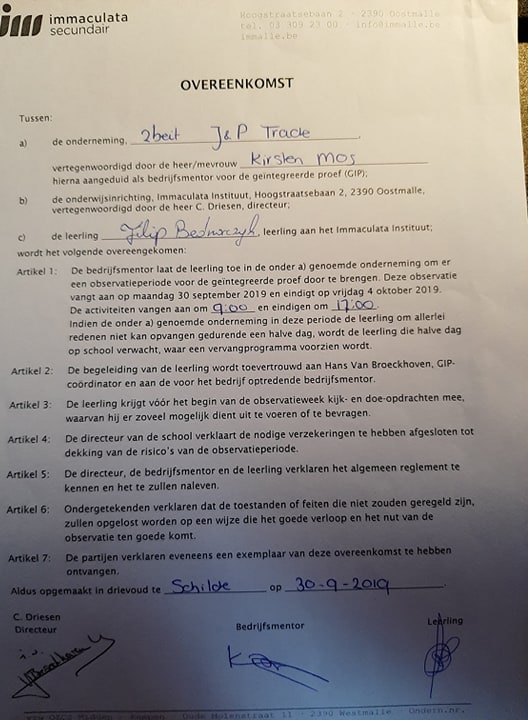 immaculata
secundair
Hoogstraatsebaan 2 - 2390 Oostmalle
tel. 03 309 23 00 - info@immalle.be -
immalle.be
OVEREENKOMST
Tussen:
a) de onderneming, 2beit J&P Trade
vertegenwoordigd door de heer/mevrouw Kirsten Mos
hierna aangeduid als bedrijfsmentor voor de geïntegreerde proef (GIP);
b) de onderwijsinrichting, Immaculata Instituut, Hoogstraatsebaan 2, 2390 Oostmalle,
vertegenwoordigd door de heer C. Driesen, directeur;
c) de leerling Filip Bednarczyk, leerling aan het Immaculata Instituut;
wordt het volgende overeengekomen:
Artikel 1: De bedrijfsmentor laat de leerling toe in de onder a) genoemde onderneming om er
een observatieperiode voor de geïntegreerde proef door te brengen. Deze observatie
vangt aan op maandag 30 september 2019 en eindigt op vrijdag 4 oktober 2019.
De activiteiten vangen aan om 9:00 en eindigen om 17:00.
Indien de onder a) genoemde onderneming in deze periode de leerling om allerlei
redenen niet kan opvangen gedurende een halve dag, wordt de leerling die halve dag
op school verwacht, waar een vervangprogramma voorzien wordt.
Artikel 2: De begeleiding van de leerling wordt toevertrouwd aan Hans Van Broeckhoven, GIP-
coördinator en aan de voor het bedrijf optredende bedrijfsmentor.
Artikel 3: De leerling krijgt vóór het begin van de observatieweek kijk- en doe-opdrachten mee,
waarvan hij er zoveel mogelijk dient uit te voeren of te bevragen.
Artikel 4: De directeur van de school verklaart de nodige verzekeringen te hebben afgesloten tot
dekking van de risico's van de observatieperiode.
Artikel 5: De directeur, de bedrijfsmentor en de leerling verklaren het algemeen reglement te
kennen en het te zullen naleven.
Artikel 6: Ondergetekenden verklaren dat de toestanden of feiten die niet zouden geregeld zijn,
zullen opgelost worden op een wijze die het goede verloop en het nut van de
observatie ten goede komt.
Artikel 7: De partijen verklaren eveneens een exemplaar van deze overeenkomst te hebben
ontvangen.
Aldus opgemaakt in drievoud te Schilde op 30-9-2019
C. Driesen
Directeur
Bedrijfsmentor
Leerling
Oude Molenstraat 11 - 2390 Westmalle - Ondern.nr.